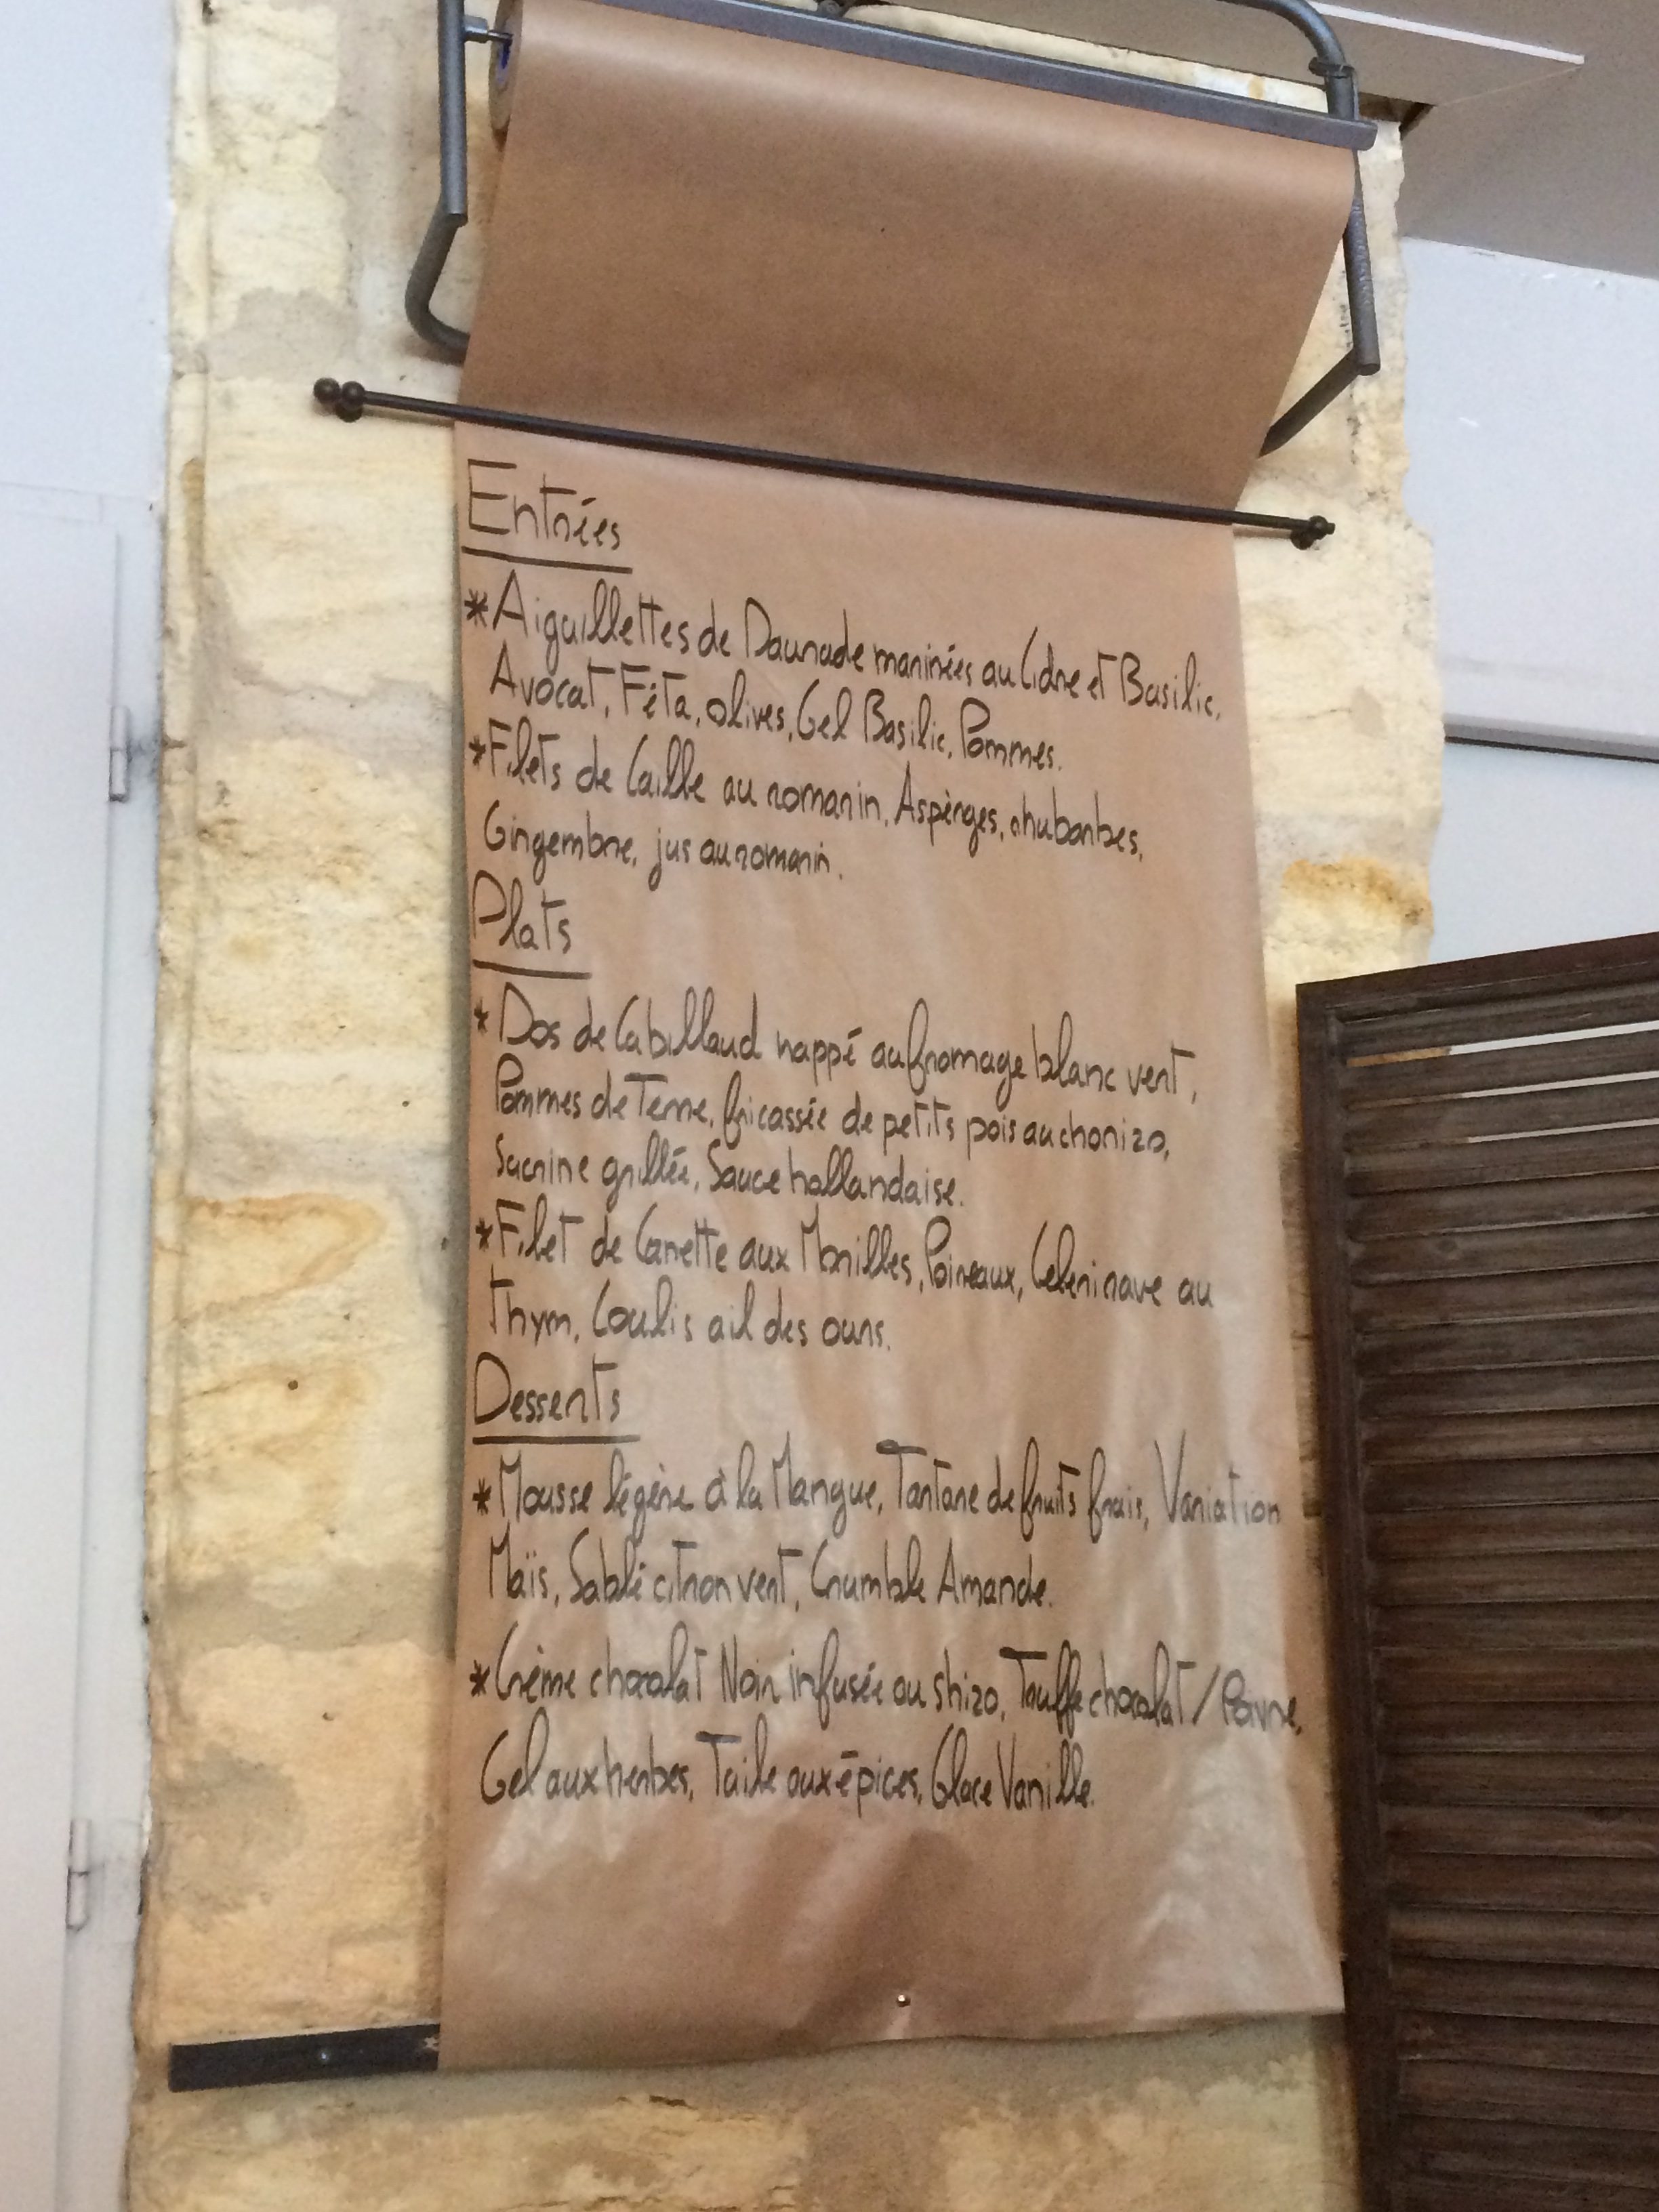 Entrées
*Aiguillettes de Daurade marinées au Cidre et Basilic,
Avocat, Féta, olives, Gel Basilic, Pommes.
*Filets de Caille au romarin, Aspèrges, rhubarbes,
Gingembre, jus au romarin.
Plats
*Dos de Cabillaud nappé au fromage blanc vert,
Pommes de Terre, fricassée de petits pois au chorizo,
Sucrine grillée, Sauce hollandaise.
*Filet de Canette aux Morilles, Poireaux, Celerirave au
Thym, Coulis ail des ours.
Desserts
*Mousse légère à la Mangue, Tartare de fruits frais, Variation
Maïs, Sablé citron vert, Crumble Amande.
*Crème chocolat Noir infusée au shizo, Truffe chocolat/Poivre,
Gel aux herbes, Tuile aux épices, Glace Vanille.